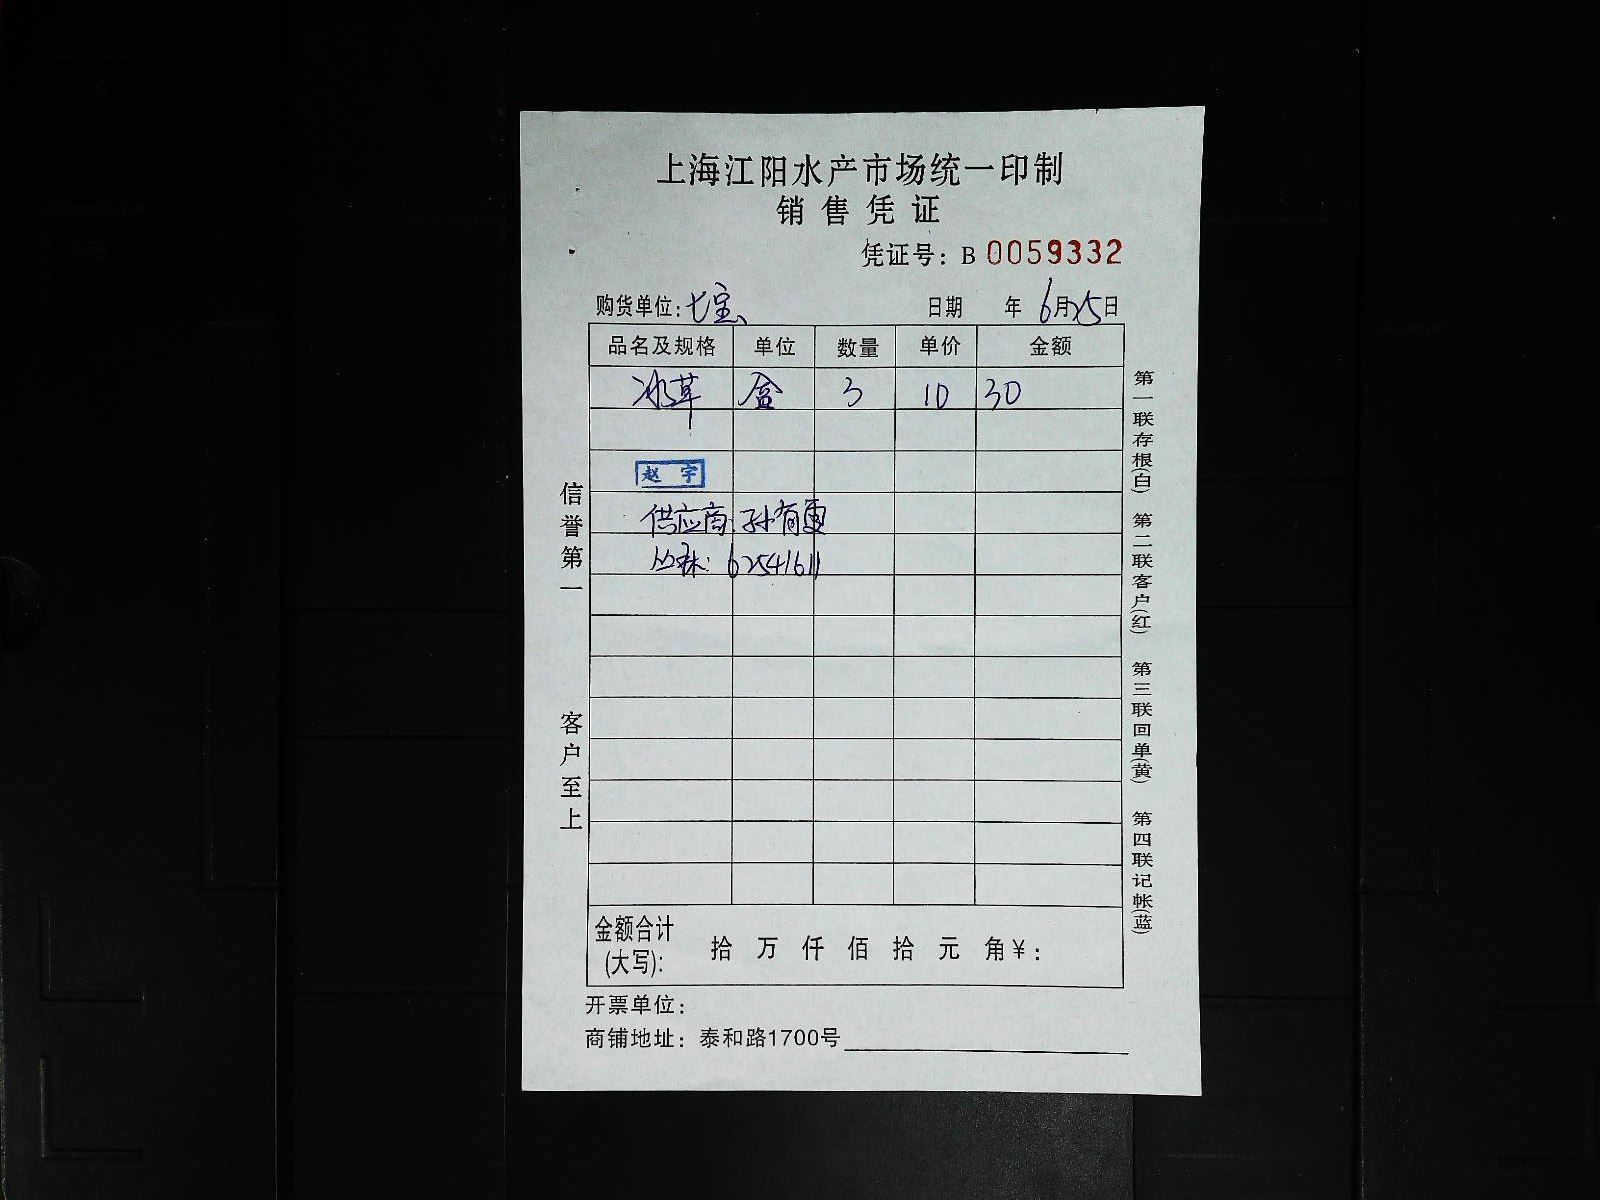 上海江阳水产市场统一印制
销售凭证
凭证号：B 0059332
购货单位：七宝
日期 年 6月25日
品名及规格 单位 数量 单价 金额
冰草 盒 3 10 30
赵宇
供应商：孙有
62541611
金额合计(大写)： 拾 万 仟 佰 拾 元 角 ¥：
开票单位：
商铺地址：泰和路1700号
信誉第一 客户至上
第一联存根(白) 第二联客户(红) 第三联回单(黄) 第四联记帐(蓝)